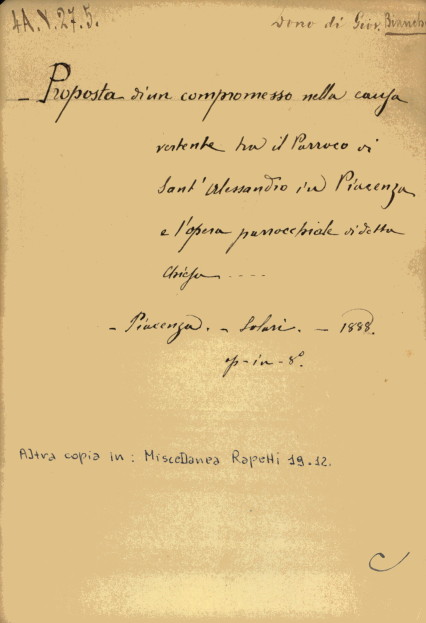 4A.V.27.5.
Dono di Giov. Bianchi
- Proposta di un compromesso nella causa
vertente tra il Parroco di
Sant' Alessandro in Piacenza
e l'opera parrocchiale di detta
Chiesa ....
- Piacenza. - Solari. - 1888.
p-in-8°.
Altra copia in: Miscellanea Rapetti 19.12.
C